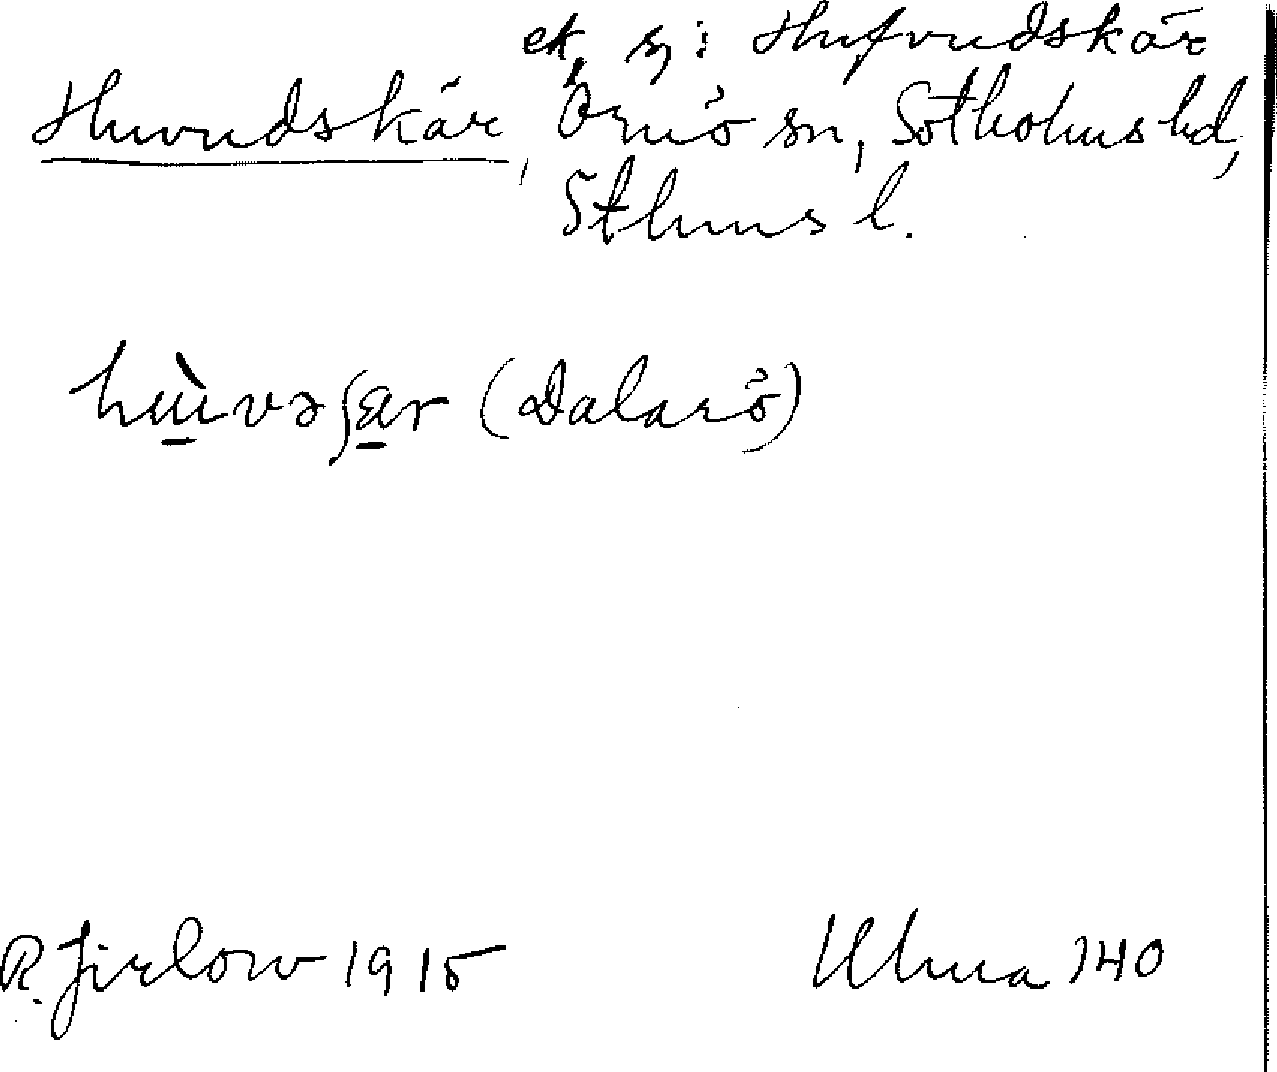 ek. sj: Hufvudskär
Huvudskär, Ornö sn, Sotholms hd,
Sthms l.
hɯ̀vəʃær (Dalarö)
R. Jirlow 1915 Ulma 140